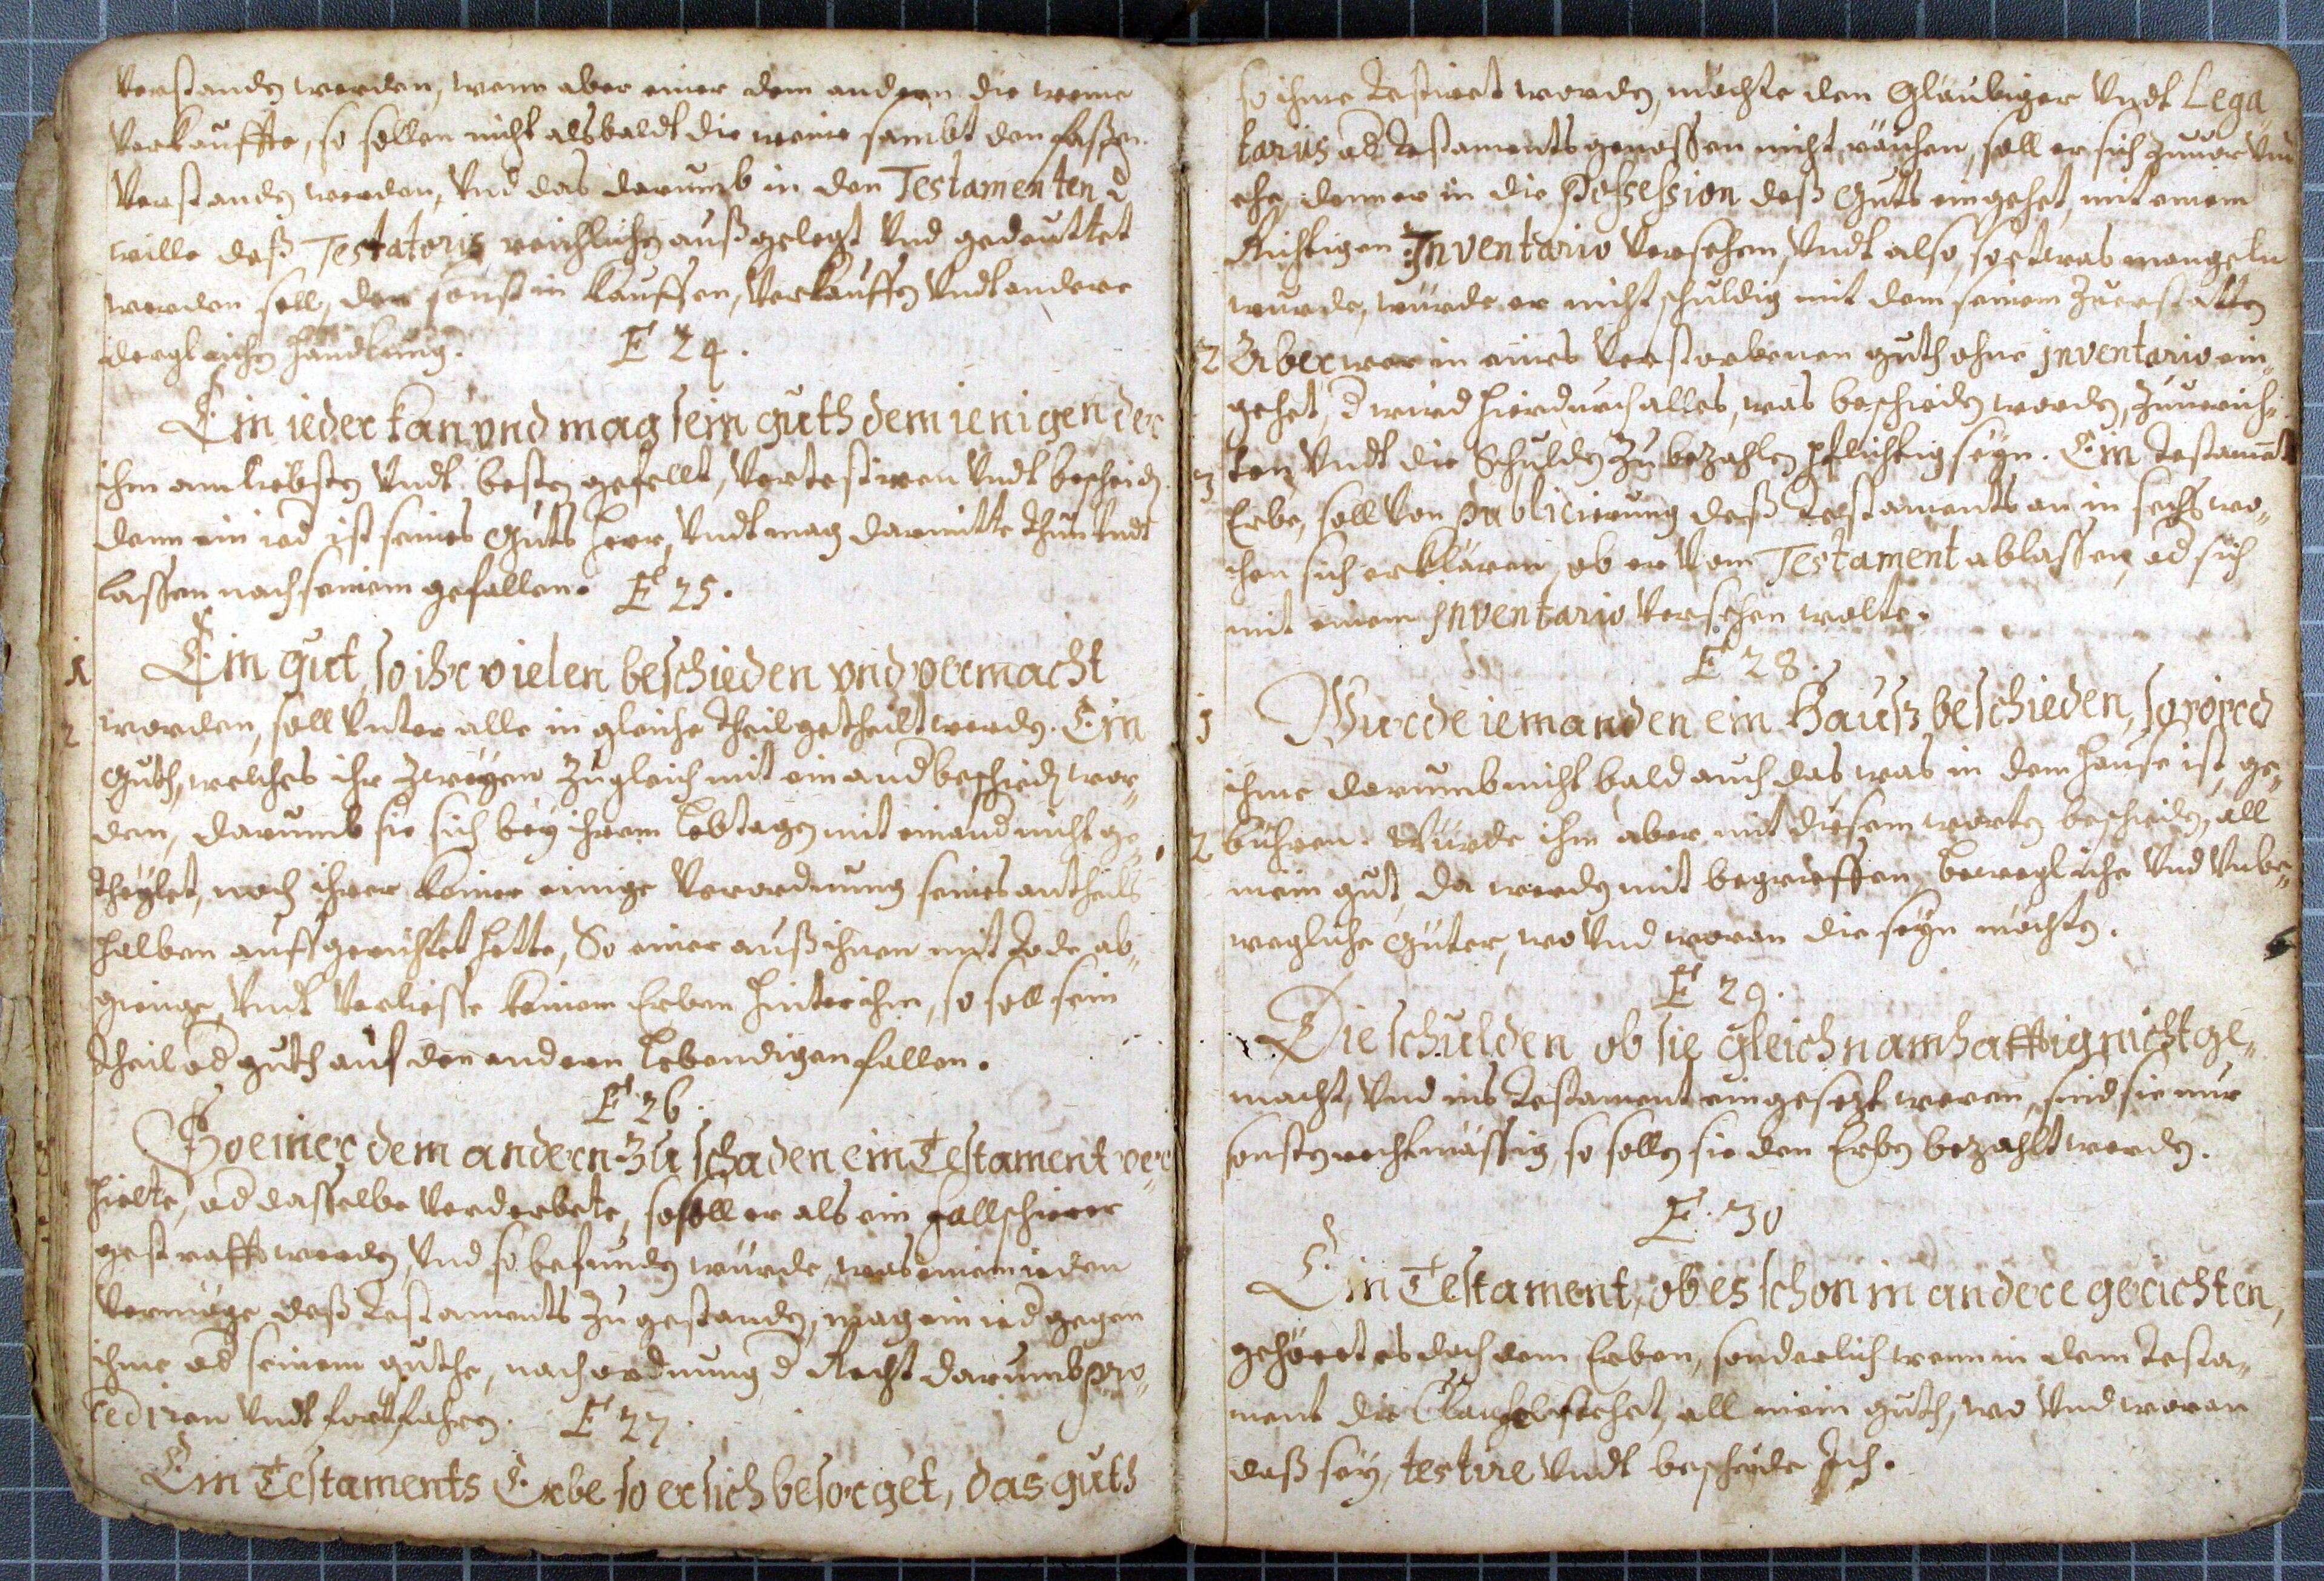 Verstanden werden, wenn aber einer dem andern die weine
Verkauffte, so sollen nicht alsbaldt die weine sambt den faßen
Verstanden werden, Vnd das darumb in den Testamenten d
wille deß Testatoris reichlicher außgelegt Vnd gedeuttet
werden soll, den sonst in Kauffen, Verkauffen Vndt andere
dergleichen handlung. E 24.
Ein ieder kan vnd mag sein guth dem ienigen der
ihm am liebsten Vndt besten gefellt, Vertestiren Vndt bescheiden
denn ein ied ist seines Guts Herr, Vndt mag darmitte thun Vndt
lassen nach seinem gefallen. E 25.
1 Ein gut, so ihr vielen beschieden vnd vermacht
2 worden, soll Vnter alle in gleiche theil getheilt werden. Ein
Guth, welches ihr zweyen zugleich mit ein and beschieden wor„
den, darumb sie sich bey ihrem Lebtagen mit einand nicht ge„
theylet, noch ihrer keiner einige Verordnung seines antheils
halben auffgerichtet hette, So einer auß ihnen mit tode ab„
gienge, Vndt Verliesse keinem Erben hinter ihm, so soll sein
theil od guth auf den andern Lebendigen fallen.
E 26.
So einer dem andern zu schaden ein Testament ver„
hielte, od dasselbe Verderbete, so soll er als ein fallschierer
gestrafft werden, Vnd so befunden würde, was einem ieden
Vermöge deß Testaments zugestanden, mag ein ied gegen
ihme od seinem guthe, nach ordnung d Recht darumb pro„
cediren Vndt fortfahren. E 27.
Ein Testaments Erbe so er sich besorget, das guth
so ihme testiret worden, möchte den Glaubiger Vndt Lega„
tarius od Testaments genossen nicht reichen, soll er sich zuuor Vnd
ehe, denn er in die Possession deß Guts eingehet, mit einem
Richtigen Inventario Versehen, Vndt also, so etwas mangeln
wurde, würde er nicht schuldig mit dem seinem zuerstatten
2 Aber wer in eines Verstorbenen guth ohne inventario ein„
gehet, d wird hierdurch alles, was beschieden worden, zuuerich„
3 ten, Vndt die Schulden zu bezahlen pflichtig seyn. Ein Testament
Erbe, soll Von publicirung deß Testaments an in sechs wo„
chen sich erklären, ob er Vom Testament ablassen, od sich
mit einem Inventario Versehen wolte.
E 28.
1 Wurde iemanden ein Hauß beschieden, so wird
ihme darumb nicht bald auch das was in dem hause ist, ge„
2 bühren. Würde ihm aber mit diesem worten beschieden, all
mein gut, da werden mit begrieffen, bewegliche Vnd Vnbe„
wegliche Güter, wo Vnd woran die seyn möchten.
E 29.
Die schulden ob sie gleich namhafftig nicht ge„
macht, Vnd ins Testament eingesetzt weren, sind sie nur
sonsten rechtmässig, so sollen sie den Erben bezahlt werden.
E. 30
Ein Testament, ob es schon in andere gerichten,
gehöret es doch dem Erben, sonderlich wenn in dem Testa„
ment die Clausel stehet, all mein guth, wo Vnd woran
daß sey, testire Vndt bescheide Ich.